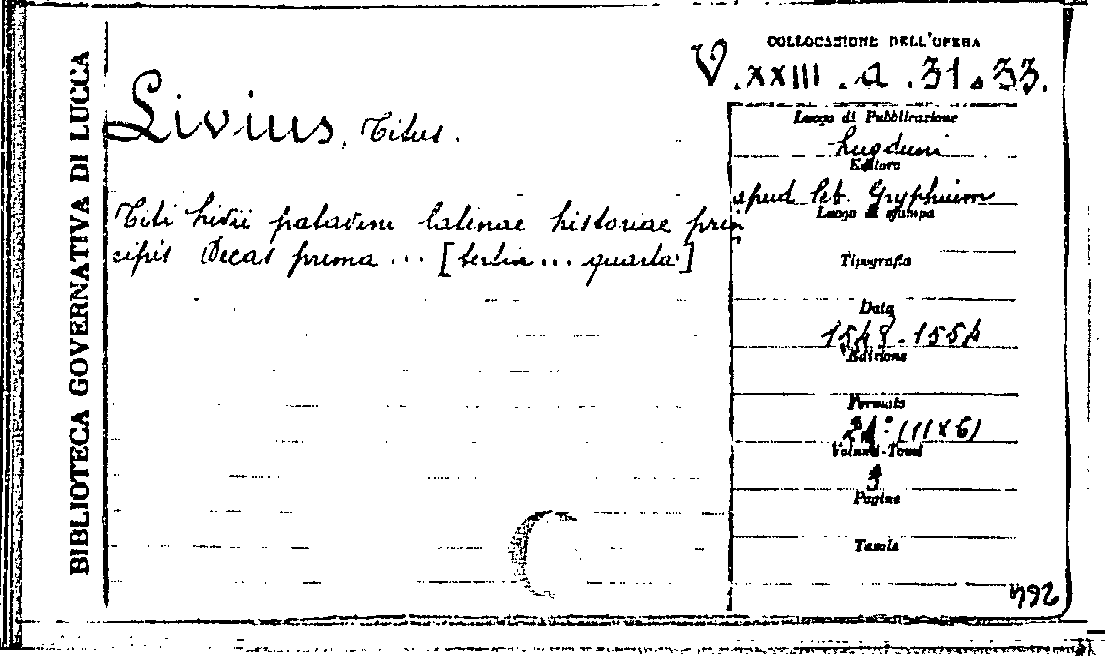 BIBLIOTECA GOVERNATIVA DI LUCCA
COLLOCAZIONE DELL'OPERA
V.XXIII.a.31.33.
Livius, Titus.
Luogo di Pubblicazione
Lugduni
Editore
apud Seb. Gryphium
Luogo di stampa
Titi Livii patavini latinae historiae prin
cipis Decas prima ... [tertia ... quarta]
Tipografia
Data
1548-1554
Edizione
Formato
24° (11x6)
Volumi-Tomi
3
Pagine
Tavole